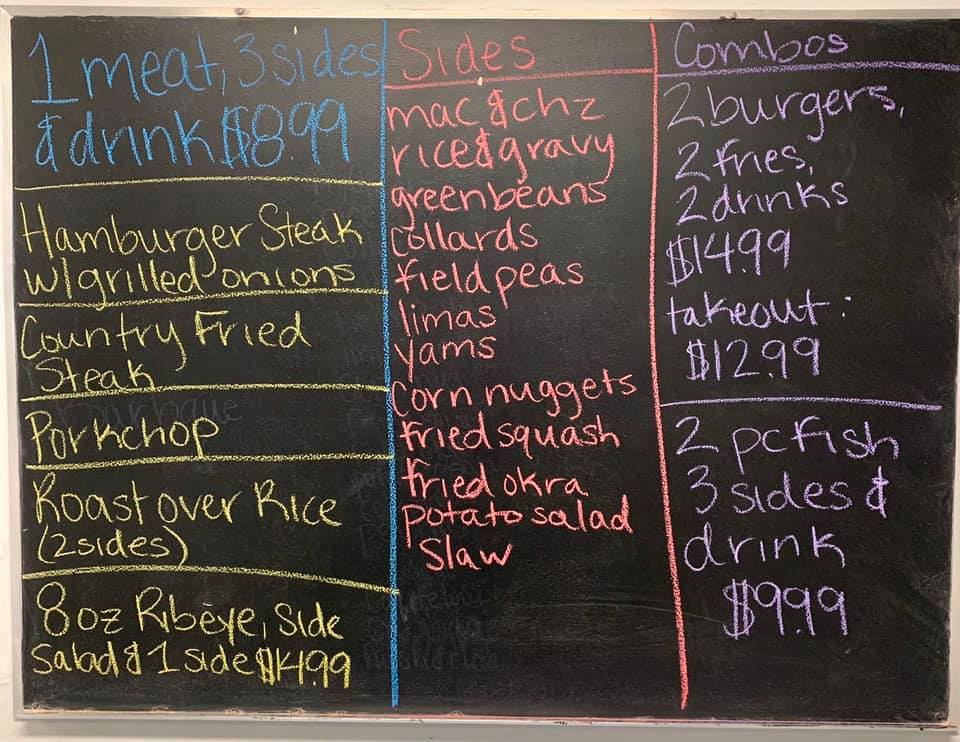 1 meat, 3 sides
& drink $8.99
Hamburger Steak
w/grilled onions
Country Fried
Steak
Porkchop
Roast over Rice
(2 sides)
8 oz Ribeye, side
salad & 1 side $14.99
Sides
mac & chz
rice & gravy
greenbeans
collards
field peas
limas
yams
corn nuggets
fried squash
fried okra
potato salad
slaw
Combos
2 burgers,
2 fries,
2 drinks
$14.99
takeout:
$12.99
2 pc fish
3 sides &
drink
$9.99